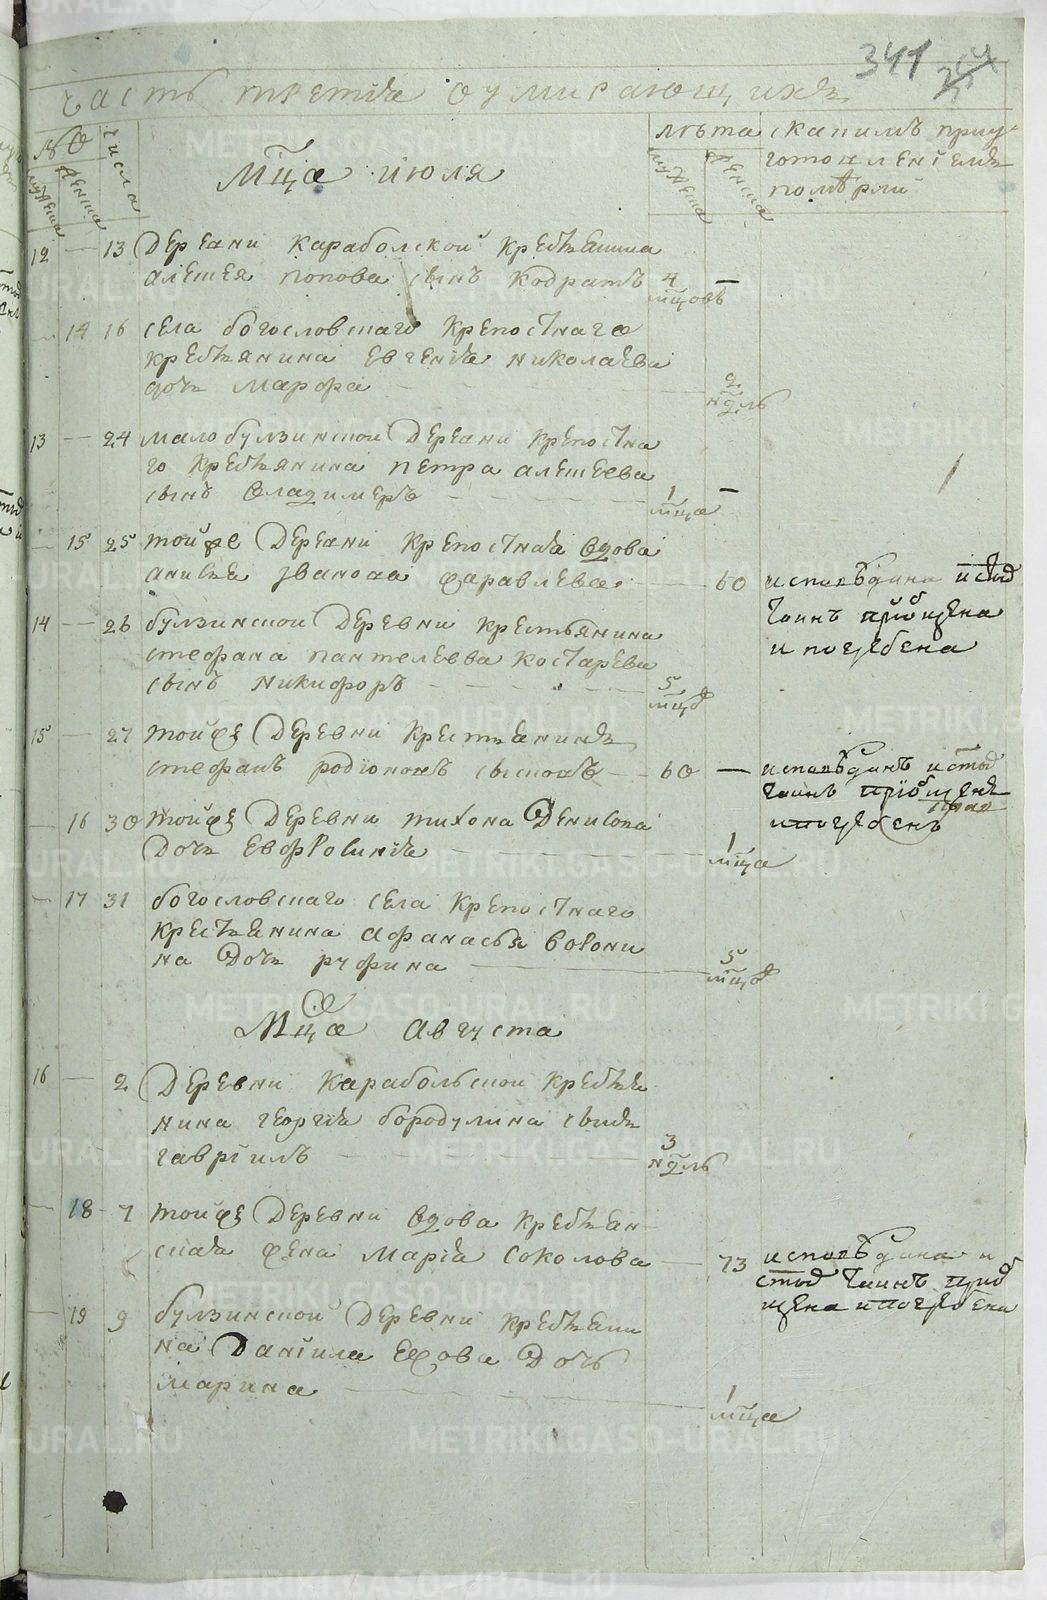 341
часть третия оумирающихъ
№
числа
лѣта
скакимъ приу
мужеска
женска
мужеска
женска
готовленіемъ
померли
Мц҃а июля
12 — 13 Деревни Караболской кресьянина
алеѯея попова сынъ Кодратъ 4 —
мц҃овъ
— 14 16 села богословскаго крепостнаго
кресьянина Евгения николаева
дочь Марфа
2
нд҃ль
13 — 24 малобулзинской Деревни крепостна
го кресьянина петра алеѯеева
сынъ Владимеръ 1 —
мц҃а
— 15 25 тойже Деревни крепостная вдова
анисья
журавлева 60 исповѣдана и с҃тых
таинъ приобщена
14 — 26 булзинской Деревни крестьянина
и погребена
стефана пантелеева костарева
сынъ никифоръ 5
мц҃ъ
15 — 27 тойже Деревни крестьянинъ
стефанъ родионовъ сысковъ 60 — исповѣданъ и с҃тых
таинъ приобщенъ
— 16 30 тойже Деревни тихона Денисова
и погребенъ
Дочь Евфросиния 1
мц҃а
— 17 31 богословскаго села крепостнаго
кресьянина афанасья воронина
на Дочь руфина 5
мц҃ъ
Мц҃а августа
16 — 2 Деревни Караболской кресья
нина георгия бородулина сынъ
гавріилъ 3
нд҃ль
— 18 7 тойже Деревни вдова кресьян
ская жена Мария Соколова 73 исповѣдана и
с҃тых таинъ приоб
щена и погребена
— 19 9 булзинской Деревни кресьяни
на Даніила Ежова Дочь
марина 1
мц҃а
METRIKI.GASO-URAL.RU